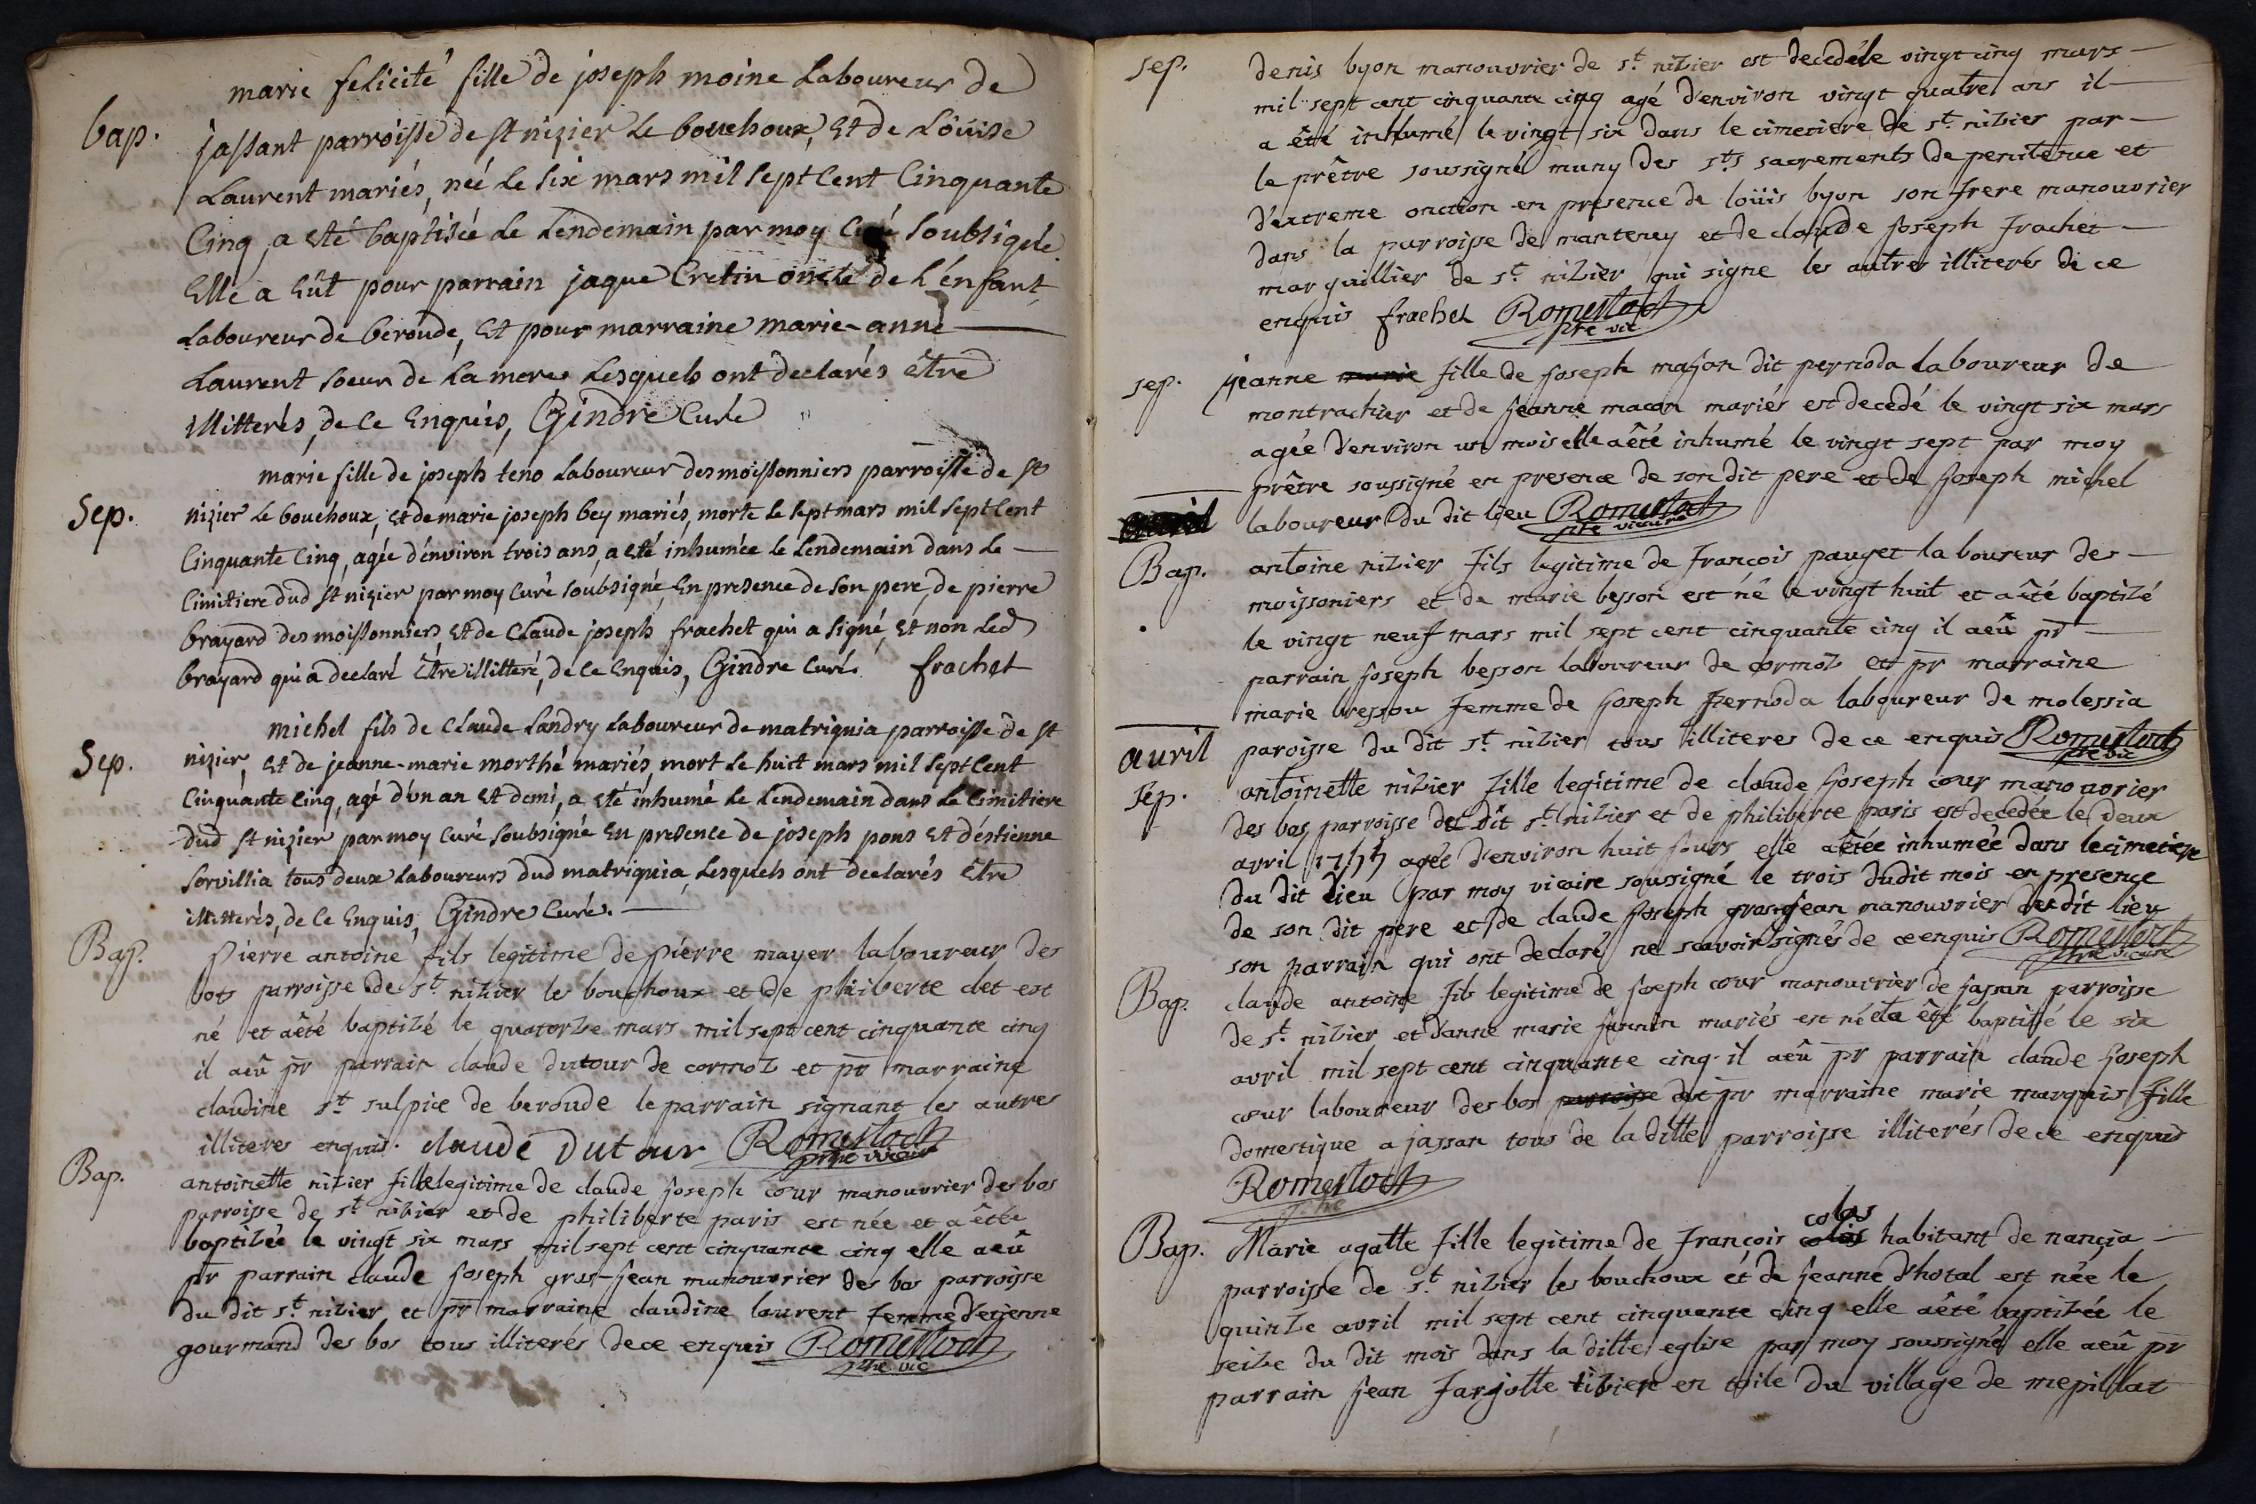 marie felicité fille de joseph moine Laboureur de
bap. jassant parroisse de st nizier Le bouchoux, Et de Loüise
Laurent mariés, née Le six mars mil sept Cent Cinquante
Cinq, a Eté baptisée Le Lendemain par moy Curé soubsigné.
Elle a Eût pour parrain jaque Cretin oncle de L'énfant,
Laboureur de beroude, Et pour marraine marie-anne
Laurent soeur de La mere Lesquels ont declarés Être
illitterés, de Ce Enquis, Gindre Curé
marie fille de joseph teno Laboureur des moissonniers parroisse de st
Sep. nizier Le bouchoux, Et de marie joseph bey mariés, morte Le sept mars mil sept Cent
Cinquante Cinq, agée d'énviron trois ans, a Eté inhumée Le Lendemain dans Le
Cimitiere dud st nizier par moy Curé soubsigné, En presence de son pere, de pierre
brayard des moissonniers, Et de Claude joseph frachet qui a signé, Et non Led
brayard qui a declaré Être illitteré, de Ce Enquis, Gindre Curé. frachet
michel fils de Claude Landry Laboureur de matriguia parroisse de st
Sep. nizier, Et de jeanne-marie morthé mariés, mort Le huit mars mil sept Cent
Cinquante Cinq, agé d'un an Et demi, a Eté inhumé Le Lendemain dans Le Cimitiere
dud st nizier par moy Curé soubsigné En presence de joseph pons Et d'éstienne
sorvillia tous deux Laboureurs dud matriguia, Lesquels ont declarés Être
illitterés, de Ce Enquis, Gindre Curé.
Bap. pierre antoine fils legitime de pierre mayer laboureur des
bots parroisse de st nizier le bouchoux et de philberte clet est
né et aêté baptizé le quatorze mars mil sept cent cinquante cinq
il aeû pr parrain claude dutour de cormoz et pr marraine
claudine st sulpice de beroude le parrain signant les autres
illiteres enquis. claude Dutour Romestoct
ptre vicaire
Bap. antoinette nizier fille legitime de claude joseph cour manouvrier des bos
parroisse de st nizier et de philiberte paris est née et a êtée
baptizée le vingt six mars mil sept cent cinquante cinq elle aeû
pr parrain claude joseph gros-jean manouvrier des bos parroisse
du dit st nizier et pr marraine claudine laurent femme d'etienne
gourmand des bos tous illiterés de ce enquis Romestoct
ptre vic
sep. denis byon manouvrier de st nizier est decedé le vingt cinq mars
mil sept cent cinquante cinq agé d'environ vingt quatre ans il
a êté inhumé le vingt six dans le cimetiere de st nizier par
le prêtre soussigné muny des sts sacrements de penitence et
d'extreme onction en presence de loüis byon son frere manouvrier
dans la parroisse de manteney et de claude joseph frachet
marguillier de st nizier qui signe les autres illiterés de ce
enquis frachet Romestoct
ptre vic
sep. jeanne marie fille de joseph mason dit pernoda laboureur de
montrachier et de jeanne macon mariés est decedé le vingt six mars
agée d'environ un mois elle aêté inhumé le vingt sept par moy
prêtre soussigné en presence de son dit pere et de joseph michel
laboureur du dit lieu Romestoct
ptre vicaire
Bap. antoine nizier fils legitime de françois pauget laboureur des
moissoniers et de marie besson est né le vingt huit et aêté baptizé
le vingt neuf mars mil sept cent cinquante cinq il aeû pr
parrain joseph besson laboureur de cormoz et pr marraine
marie bresson femme de joseph pernoda laboureur de molessia
avril paroisse du dit st nizier tous illiteres de ce enquis Romestoct
ptre vic
sep. antoinette nizier fille legitime de claude joseph cour manouvrier
des bos parroisse du dit st nizier et de philiberte paris est decedée le deux
avril 1755 agée d'environ huit jours elle aêtée inhumée dans le cimetiere
du dit lieu par moy vicaire soussigné le trois dudit mois en presence
de son dit pere et de claude joseph gros-jean manouvrier du dit lieu
son parrain qui ont declaré ne scavoir signés de ce enquis Romestoct
ptre vicaire
Bap. claude antoine fils legitime de joseph cour manouvrier de jassan parroisse
de st nizier et d'anne marie jannin mariés est né et a êté baptizé le six
avril mil sept cent cinquante cinq il aeû pr parrain claude joseph
cour laboureur des bos parroisse et pr marraine marie marquis fille
domestique a jassan tous de la ditte parroisse illiterés de ce enquis
Romestoct
ptre
colas
Bap. Marie agatte fille legitime de françois colas habitant de nancia
parroisse de st nizier les bouchoux et de jeanne d'hotal est née le
quinze avril mil sept cent cinquante cinq elle aêté baptizée le
seize du dit mois dans la ditte eglise par moy soussigné elle aeû pr
parrain jean farjotte tixier en toile du village de mepillat